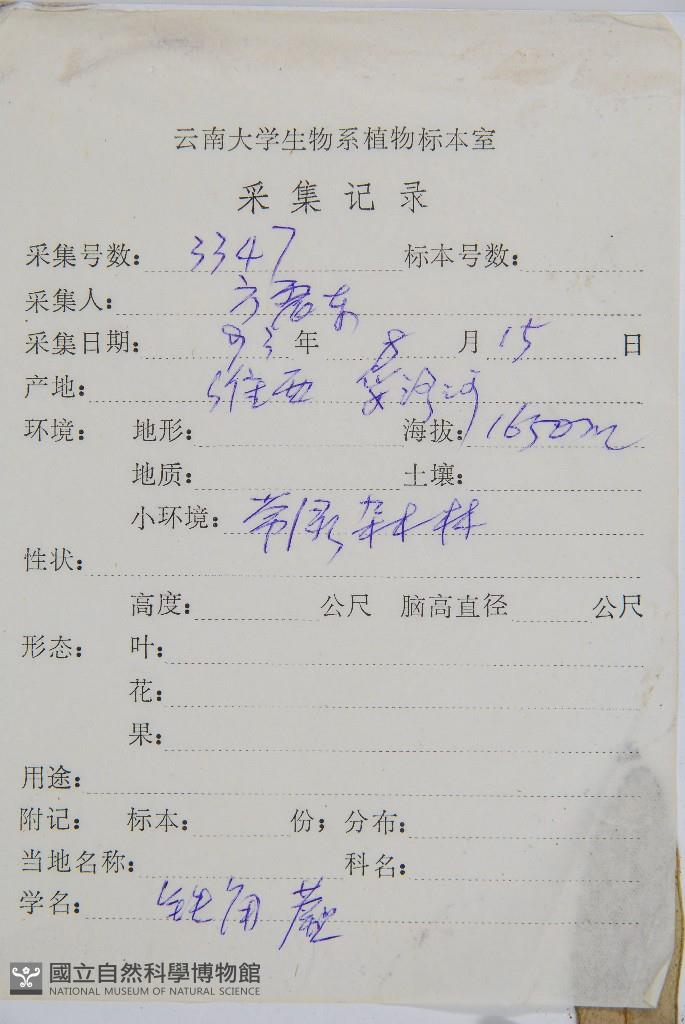 云南大学生物系植物标本室
采集记录
采集号数: 3347 标本号数:
采集人: 方
采集日期: 93 年 8 月 15 日
产地: 维西
环境: 地形: 海拔: 1650m
地质: 土壤:
小环境: 常绿杂木林
性状:
高度: 公尺 脑高直径 公尺
形态: 叶:
花:
果:
用途:
附记: 标本: 份; 分布:
当地名称: 科名:
学名: 铁角蕨
國立自然科學博物館
NATIONAL MUSEUM OF NATURAL SCIENCE